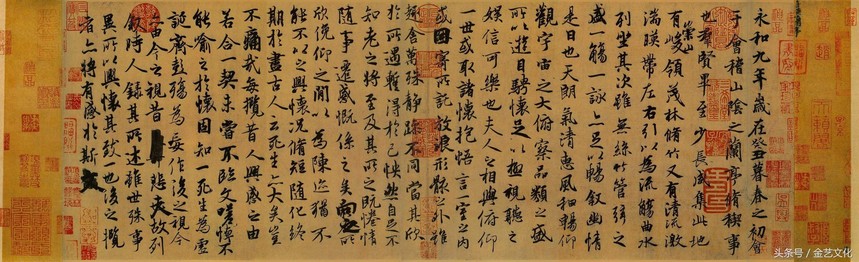 永和九年歲在癸丑暮春之初會
于會稽山陰之蘭亭脩稧事
也羣賢畢至少長咸集此地
有崇山峻領茂林脩竹又有清流激
湍暎帶左右引以為流觴曲水
列坐其次雖無絲竹管弦之
盛一觴一詠亦足以暢敘幽情
是日也天朗氣清惠風和暢仰
觀宇宙之大俯察品類之盛
所以遊目騁懷足以極視聽之
娛信可樂也夫人之相與俯仰
一世或取諸懷抱悟言一室之內
或因寄所託放浪形骸之外雖
趣舍萬殊靜躁不同當其欣
於所遇蹔得於己怏然自足不
知老之將至及其所之既惓情
隨事遷感慨係之矣向之所
欣俛仰之閒以為陳迹猶不
能不以之興懷況脩短隨化終
期於盡古人云死生亦大矣豈
不痛哉每攬昔人興感之由
若合一契未嘗不臨文嗟悼不
能喻之於懷固知一死生為虛
誕齊彭殤為妄作後之視今
亦由今之視昔悲夫故列
敘時人錄其所述雖世殊事
異所以興懷其致一也後之攬
者亦將有感於斯文
头条号／金艺文化